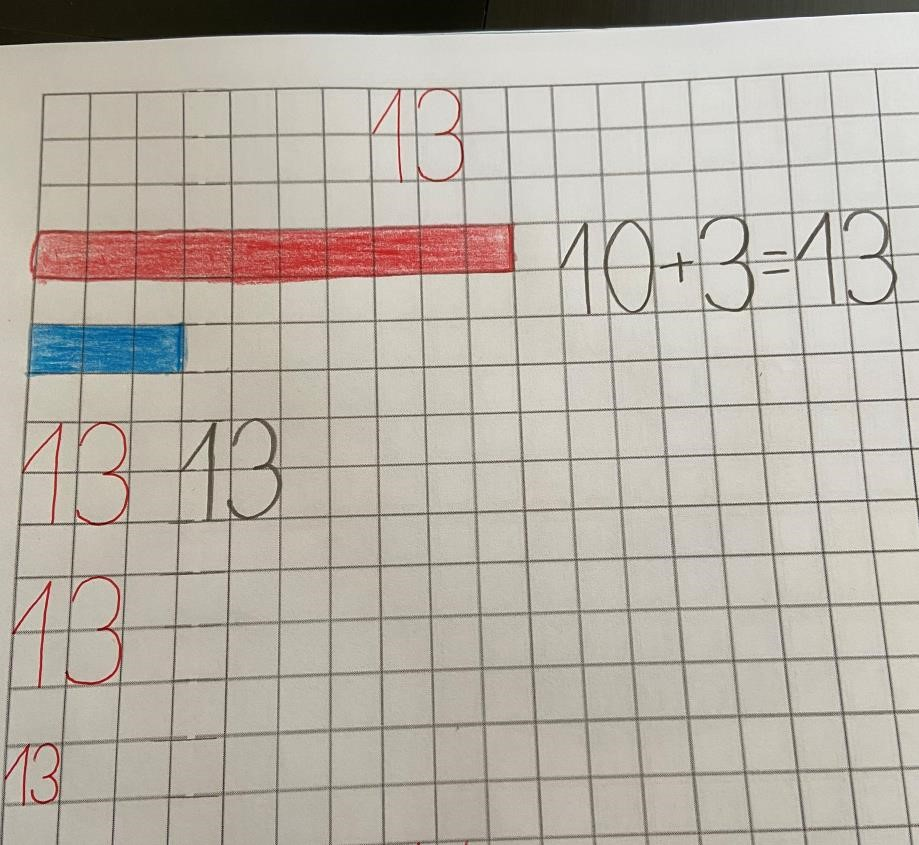 13
10+3=13
13 13
13
13